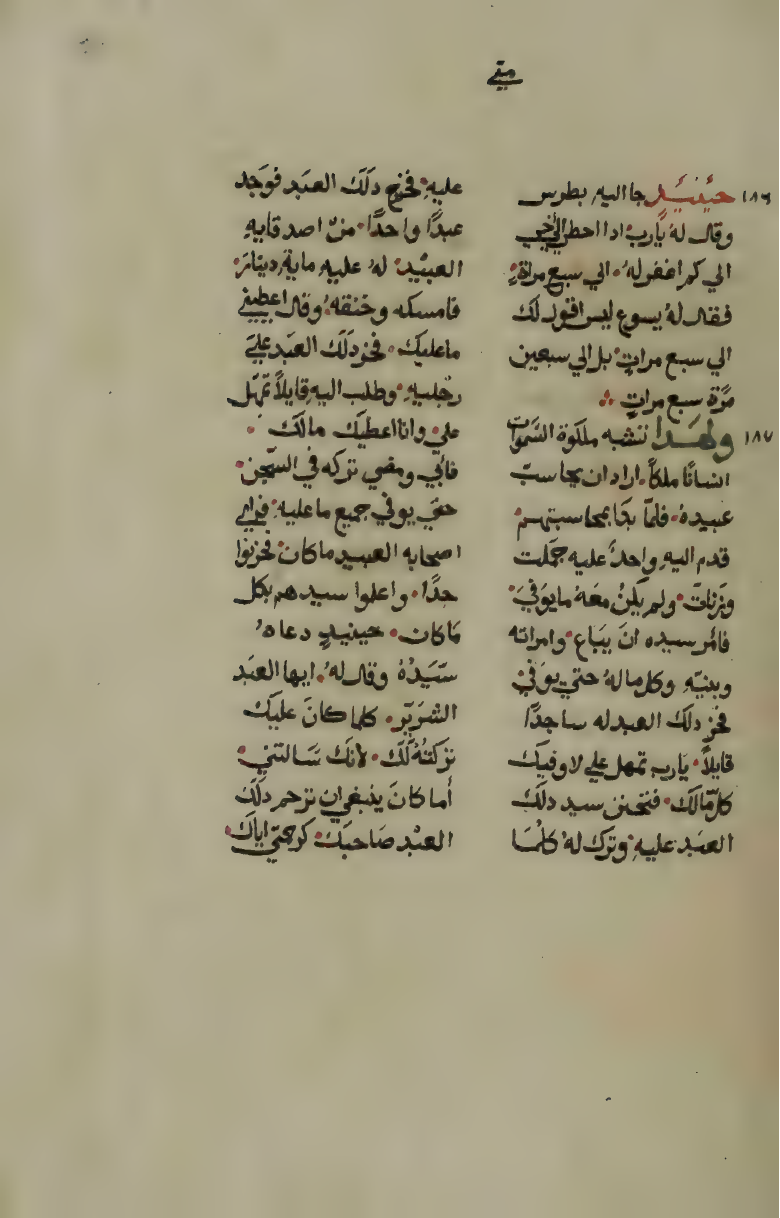 متي
١٨٦ حينيذٍ جا اليهِ بطرس
وقال لهُ يارب اذا اخطا الي اخي
الي كم اغفر لهُ الي سبع مراة
فقال لهُ يسوع ليس اقول لك
الي سبع مراتٍ بل الي سبعين
مرّة سبع مراتٍ
١٨٧ ولهَذا تشبه ملكوة السَموات
انسانًا ملكاً اراد ان يحاسبَ
عبيدهُ فلمّا بدَا بمحاسبتهم
قدم اليهِ واحدٌ عليه جملت
وزناتٍ ولم يكنْ معَهُ ما يوَفيَ
فامَر سيده انَ يبَاع وامراته
وبنيهِ وكل ماله حتي يوَفيْ
فخر دلك العبد له ساجدًا
قايلاً يَارب تمهل علي لاوفيَك
كلّ مَالك فتحنن سيد دلَك
العبَد عليهِ وترك لهُ كلمَا
عليهِ فخرج دلَك العبَد فوَجد
عبدًا واحدًا منْ اصدقايهِ
العبَيْد لهُ عليهِ ماية دينار
فامسكه وخنقهُ وقال اعطيني
ما عليكَ فخر دَلك العبَد علَيَ
رجليهِ وطلب اليهِ قايلاً تمهّل
علي وانا اعطيَك مالَكَ
فابَي ومضي تركه في السّجن
حتيَ يوفي جميع ما عليهِ فرايَ
اصحابه العبيد ما كان فحزنوا
جدًا واعلموا سيدهم بكل
مَا كان حينيدٍ دعاهُ
سَيَدْهُ وقال لهُ ايها العبَد
الشريَر كلما كانَ عليَك
تركتهُ لَك لانَك سَالتني
أما كانَ ينبغي ان ترحم دلَك
العبْد صَاحبَك كرحمتي اياَك